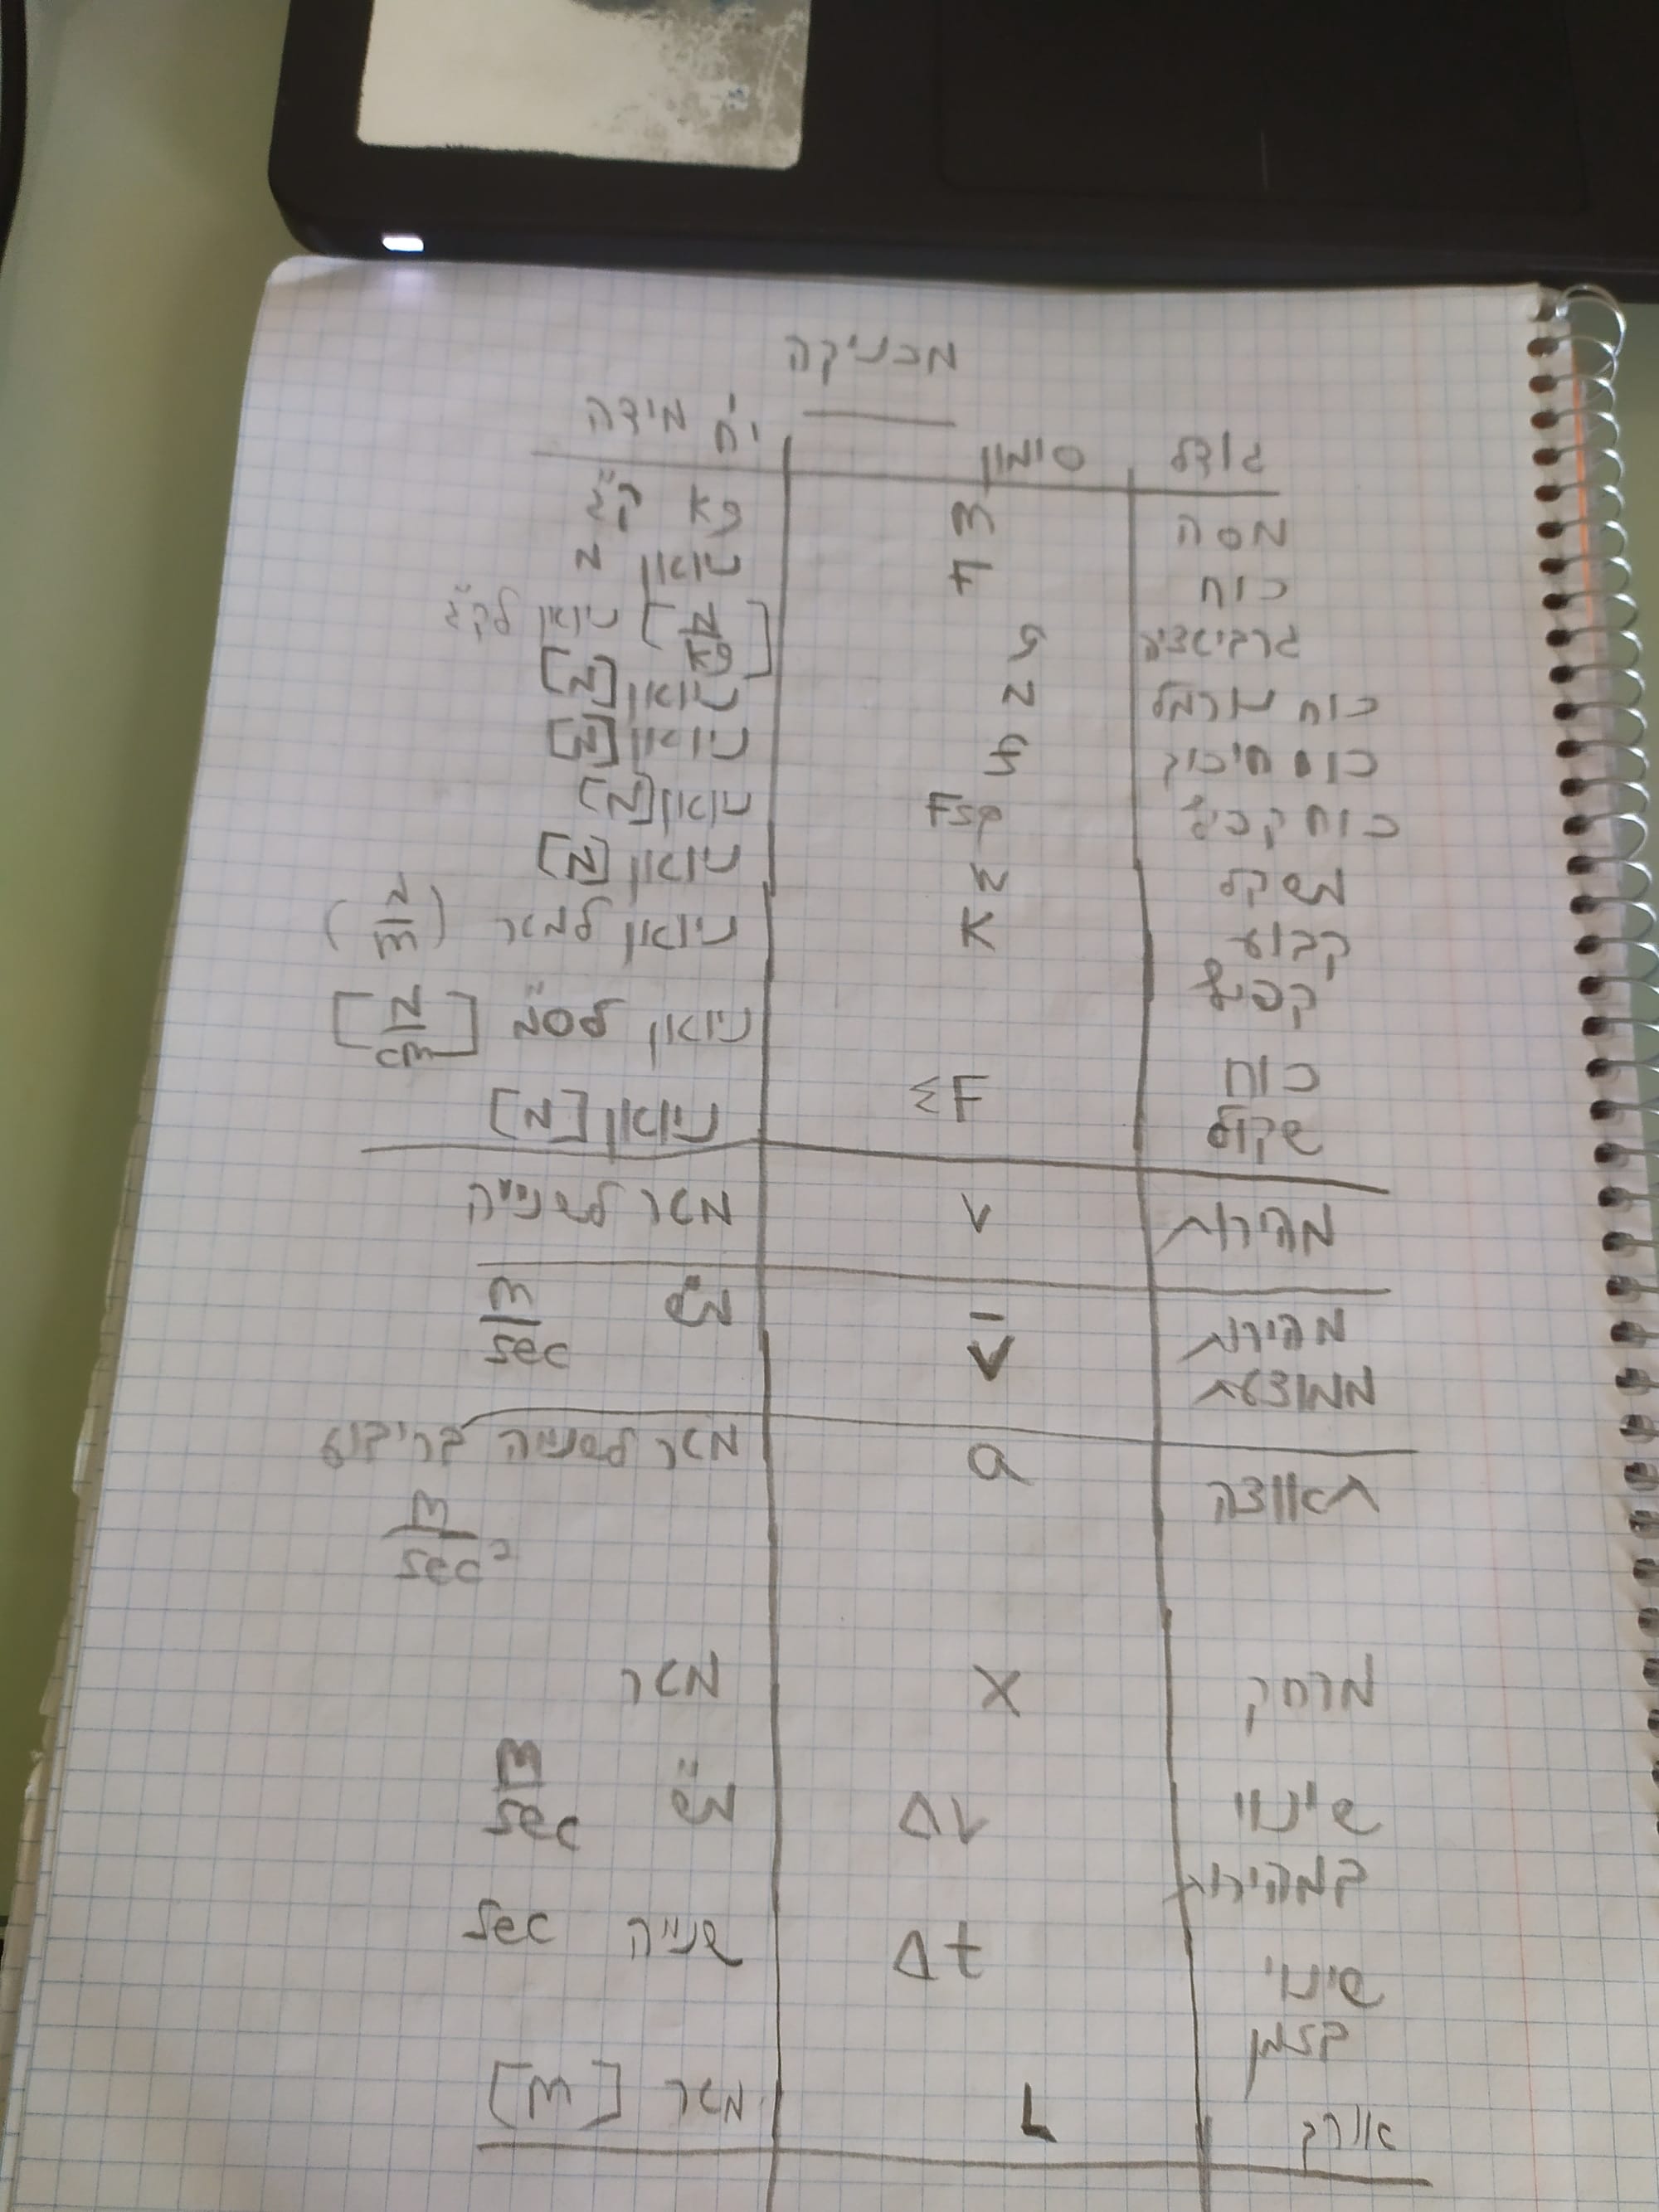 מכניקה
גודל סימון יח' מידה
מסה m kg ק"ג
כוח F ניוטון N
גרביטציה g [N/kg] ניוטון לק"ג
כוח נורמל N ניוטון [N]
כוח חיכוך f ניוטון [N]
כוח קפיץ Fsp ניוטון [N]
משקל W ניוטון [N]
קבוע K ניוטון למטר (N/m)
קפיץ
ניוטון לס"מ [N/cm]
כוח ΣF ניוטון [N]
שקול
מהירות v מטר לשנייה
מהירות v̄ מ"ש m/sec
ממוצעת
תאוצה a מטר לשנייה בריבוע
m/sec²
מרחק X מטר
שינוי Δv מ"ש m/sec
במהירות
שינוי Δt שנייה sec
בזמן
אורך L מטר [m]